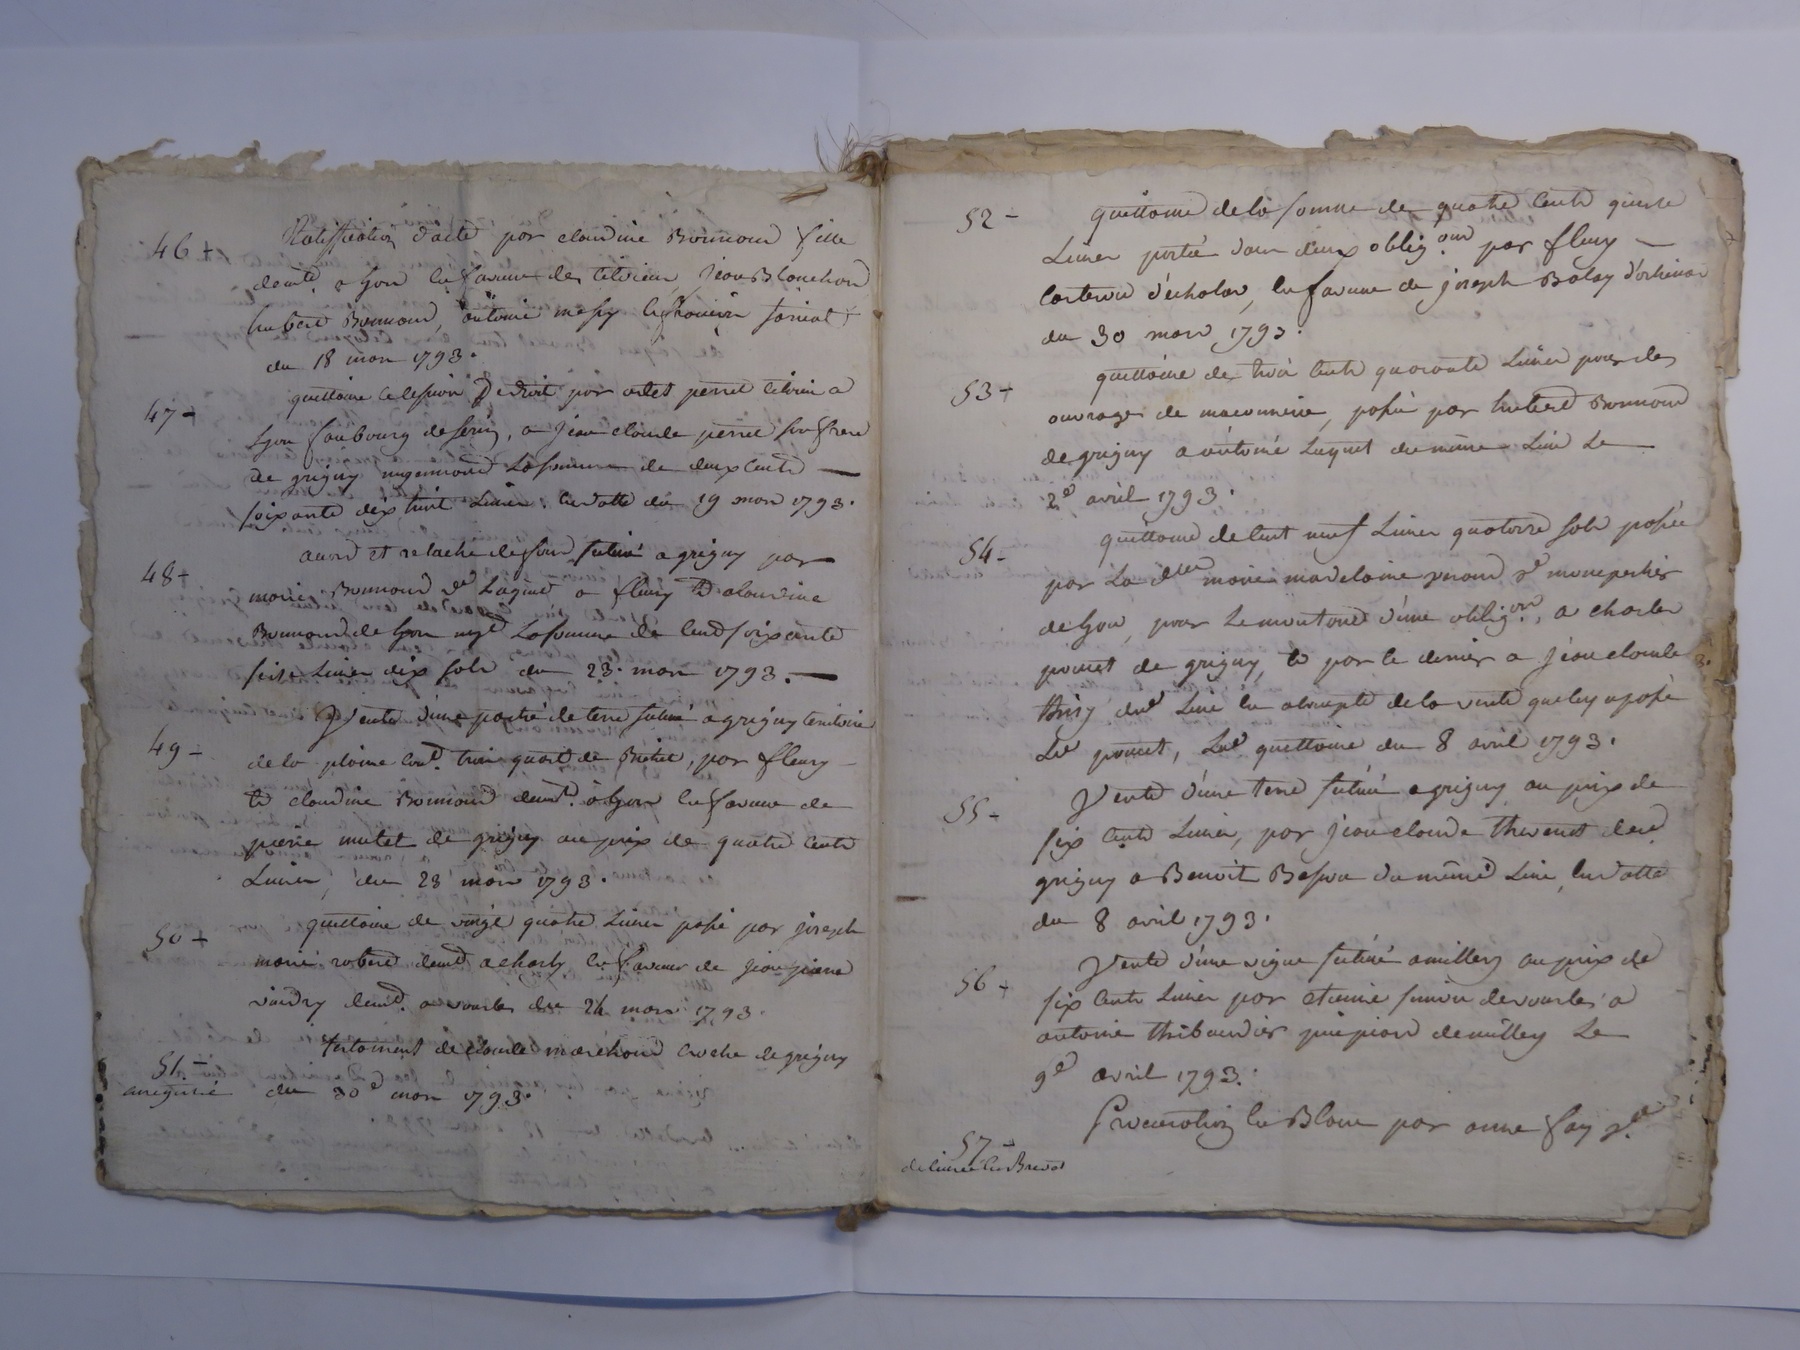 46 + Ratiffication d'acte par claudine Bonnond fille
demt. a lyon en faveur des citoiens, jean Blanchon
hubert Bonnond, antoine
du 18 mars 1793.
47 - quittance cession de droit par citoien a
lyon faubourg de serin, a jean claude perret son frere
de grigny moyennant la somme de deux cents
soixante dix huit livres en datte du 19 mars 1793.
48 + et relache de fond situé a grigny par
marie Bonnond a fleury et claudine
Bonnond de lyon moyt la somme de cent soixante
seise livres dix sols du 23. mars 1793.
49 - Vente d'une partie de terre situé a grigny territoire
de la plaine cont. trois quart de Bichet, par fleury
et claudine Bonnond demt. a lyon en faveur de
pierre mutet de grigny au prix de quatre cents
Livres, du 23 mars 1793.
50 + quittance de vingt quatre Livres passé par joseph
marie robert demt a charly en faveur de jean pierre
demt. a vourles du 24 mars 1793.
51. - testament de claude maréchond de grigny
du 30e mars 1793.
52 - quittance de la somme de quatre cents quinse
Livres portée dans deux obligons par fleury
d'echalas, en faveur de joseph Balay
du 30 mars 1793.
53 + quittance de trois cents quarante Livres pour des
ouvrages de maconnerie, passé par hubert Bonnond
de grigny a antoine Luquet du même Lieu Le
2e avril 1793.
54 - quittance de cent neuf Livres quatorze sols passée
par La dlle marie madelaine
de lyon, pour le montand d'une obligon, a charles
poncet de grigny, et par le dernier a jean claude
thiry dud Lieu en acompte de la vente que luy a passé
Led poncet, Lad quittance du 8 avril 1793.
55 - Vente d'une terre situé a grigny au prix de
six cents Livres, par jean claude thevenet
grigny a Benoit du même Lieu, en datte
du 8 avril 1793.
56 + Vente d'une vigne situé a millery au prix de
six cents Livres par etienne de vourles a
antoine thibaudier de millery Le
9e avril 1793.
57 - Procuration en Blanc par anne fay
delivrée en Brevet